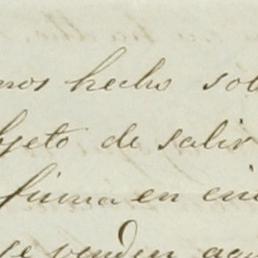 mos hecho sob
bjeto de salir
firma en cin
se venden aqu